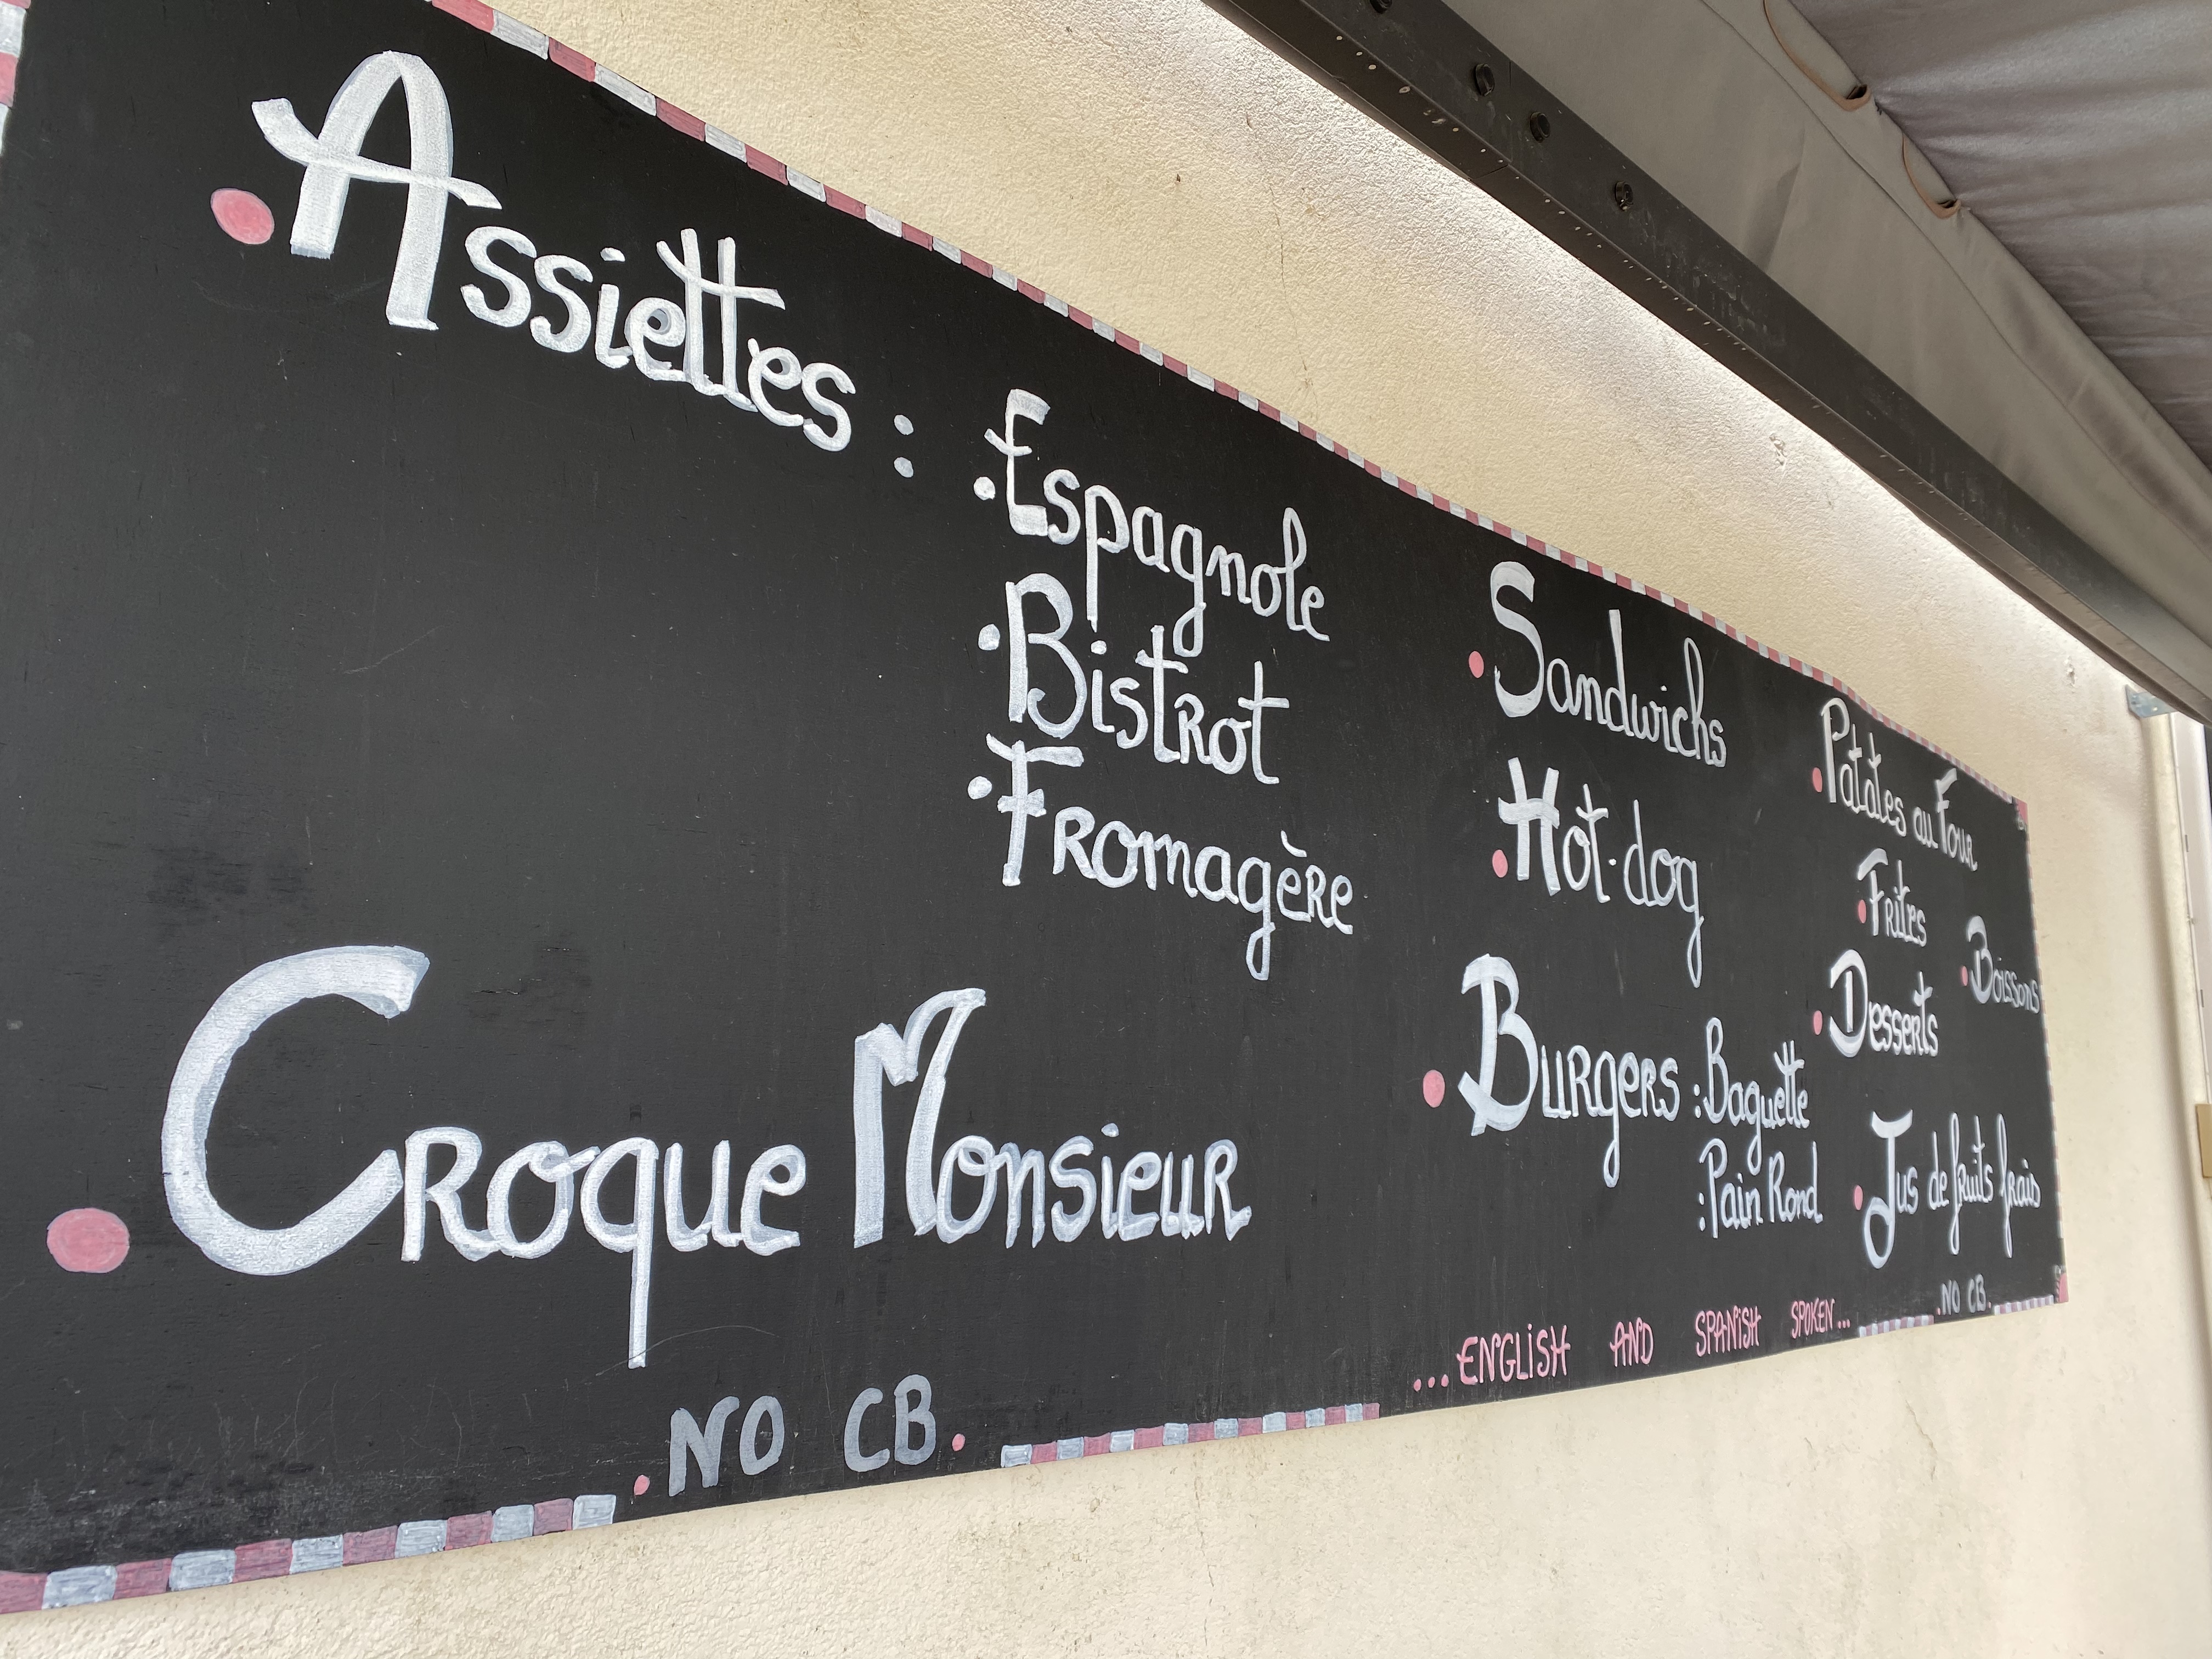 Assiettes :
. Espagnole
. Bistrot
. Fromagère
. Croque Monsieur
. Sandwichs
. Hot-dog
. Burgers : Baguette
: Pain Rond
. Patates au Four
. Frites
. Desserts
. Boissons
. Jus de fruits frais
. NO CB.
...ENGLISH AND SPANISH SPOKEN...
. NO CB.